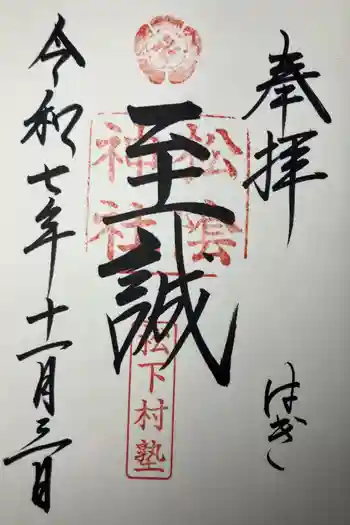 奉拝
はぎ
松陰
神社
至誠
松下村塾
令和七年十一月三日